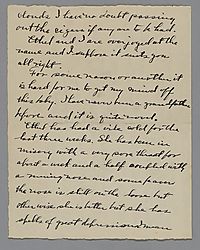 clouds I have no doubt passing
out the cigars if any are to be had.
Ethel and I are overjoyed at the
name and I suppose it suits you
all right.
For some reason or another it
is hard for me to get my mind off
this baby. I have never been a grandfather
before and it is quite novel.
Ethel has had a vile cold for the
last three weeks. She has been in
misery with a very sore throat for
about a week and a half coupled with
a running nose and some fever
the nose is still on the loose but
otherwise she is better but she has
spells of great depression